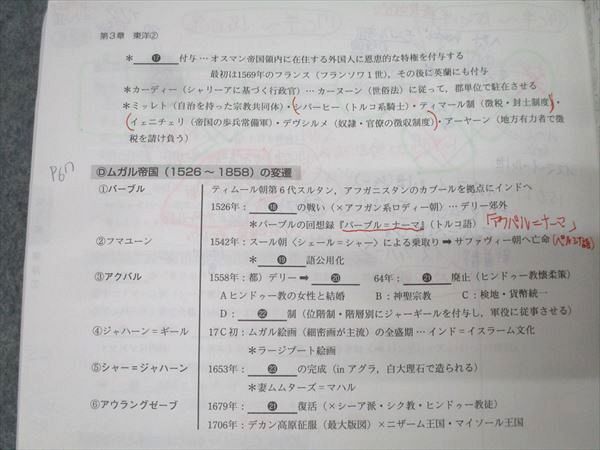 第3章 東洋②
＊ ⓱ 付与…オスマン帝国領内に在住する外国人に恩恵的な特権を付与する
最初は1569年のフランス（フランソワ1世），その後に英蘭にも付与
＊カーディー（シャリーアに基づく行政官）…カーヌーン（世俗法）に従って，郡単位で駐在させる
＊ミッレト（自治を持った宗教共同体）・シパーヒー（トルコ系騎士）・ティマール制（徴税・封土制度）・
イェニチェリ（帝国の歩兵常備軍）・デヴシルメ（奴隷・官僚の徴収制度）・アーヤーン（地方有力者で徴
税を請け負う）
P67
Ⓓムガル帝国（1526～1858）の変遷
①バーブル ティムール朝第6代スルタン，アフガニスタンのカブールを拠点にインドへ
1526年： ⓲ の戦い（×アフガン系ロディー朝）…デリー郊外
＊バーブルの回想録『バーブル＝ナーマ』（トルコ語）「アクバル＝ナーマ」
②フマユーン 1542年：スール朝〈シェール＝シャー〉による乗取り➡サファヴィー朝へ亡命（ペルシア語）
＊ ⓳ 語公用化
③アクバル 1558年：都）デリー➡ ⓴ 64年： ㉑ 廃止（ヒンドゥー教懐柔策）
A ヒンドゥー教の女性と結婚 B：神聖宗教 C：検地・貨幣統一
D： ㉒ 制（位階制・階層別にジャーギールを付与し，軍役に従事させる）
④ジャハーン＝ギール 17C初：ムガル絵画（細密画が主流）の全盛期…インド＝イスラーム文化
＊ラージプート絵画
⑤シャー＝ジャハーン 1653年： ㉓ の完成（in アグラ，白大理石で造られる）
＊妻ムムターズ＝マハル
⑥アウラングゼーブ 1679年： ㉑ 復活（×シーア派・シク教・ヒンドゥー教徒）
1706年：デカン高原征服（最大版図）×ニザーム王国・マイソール王国